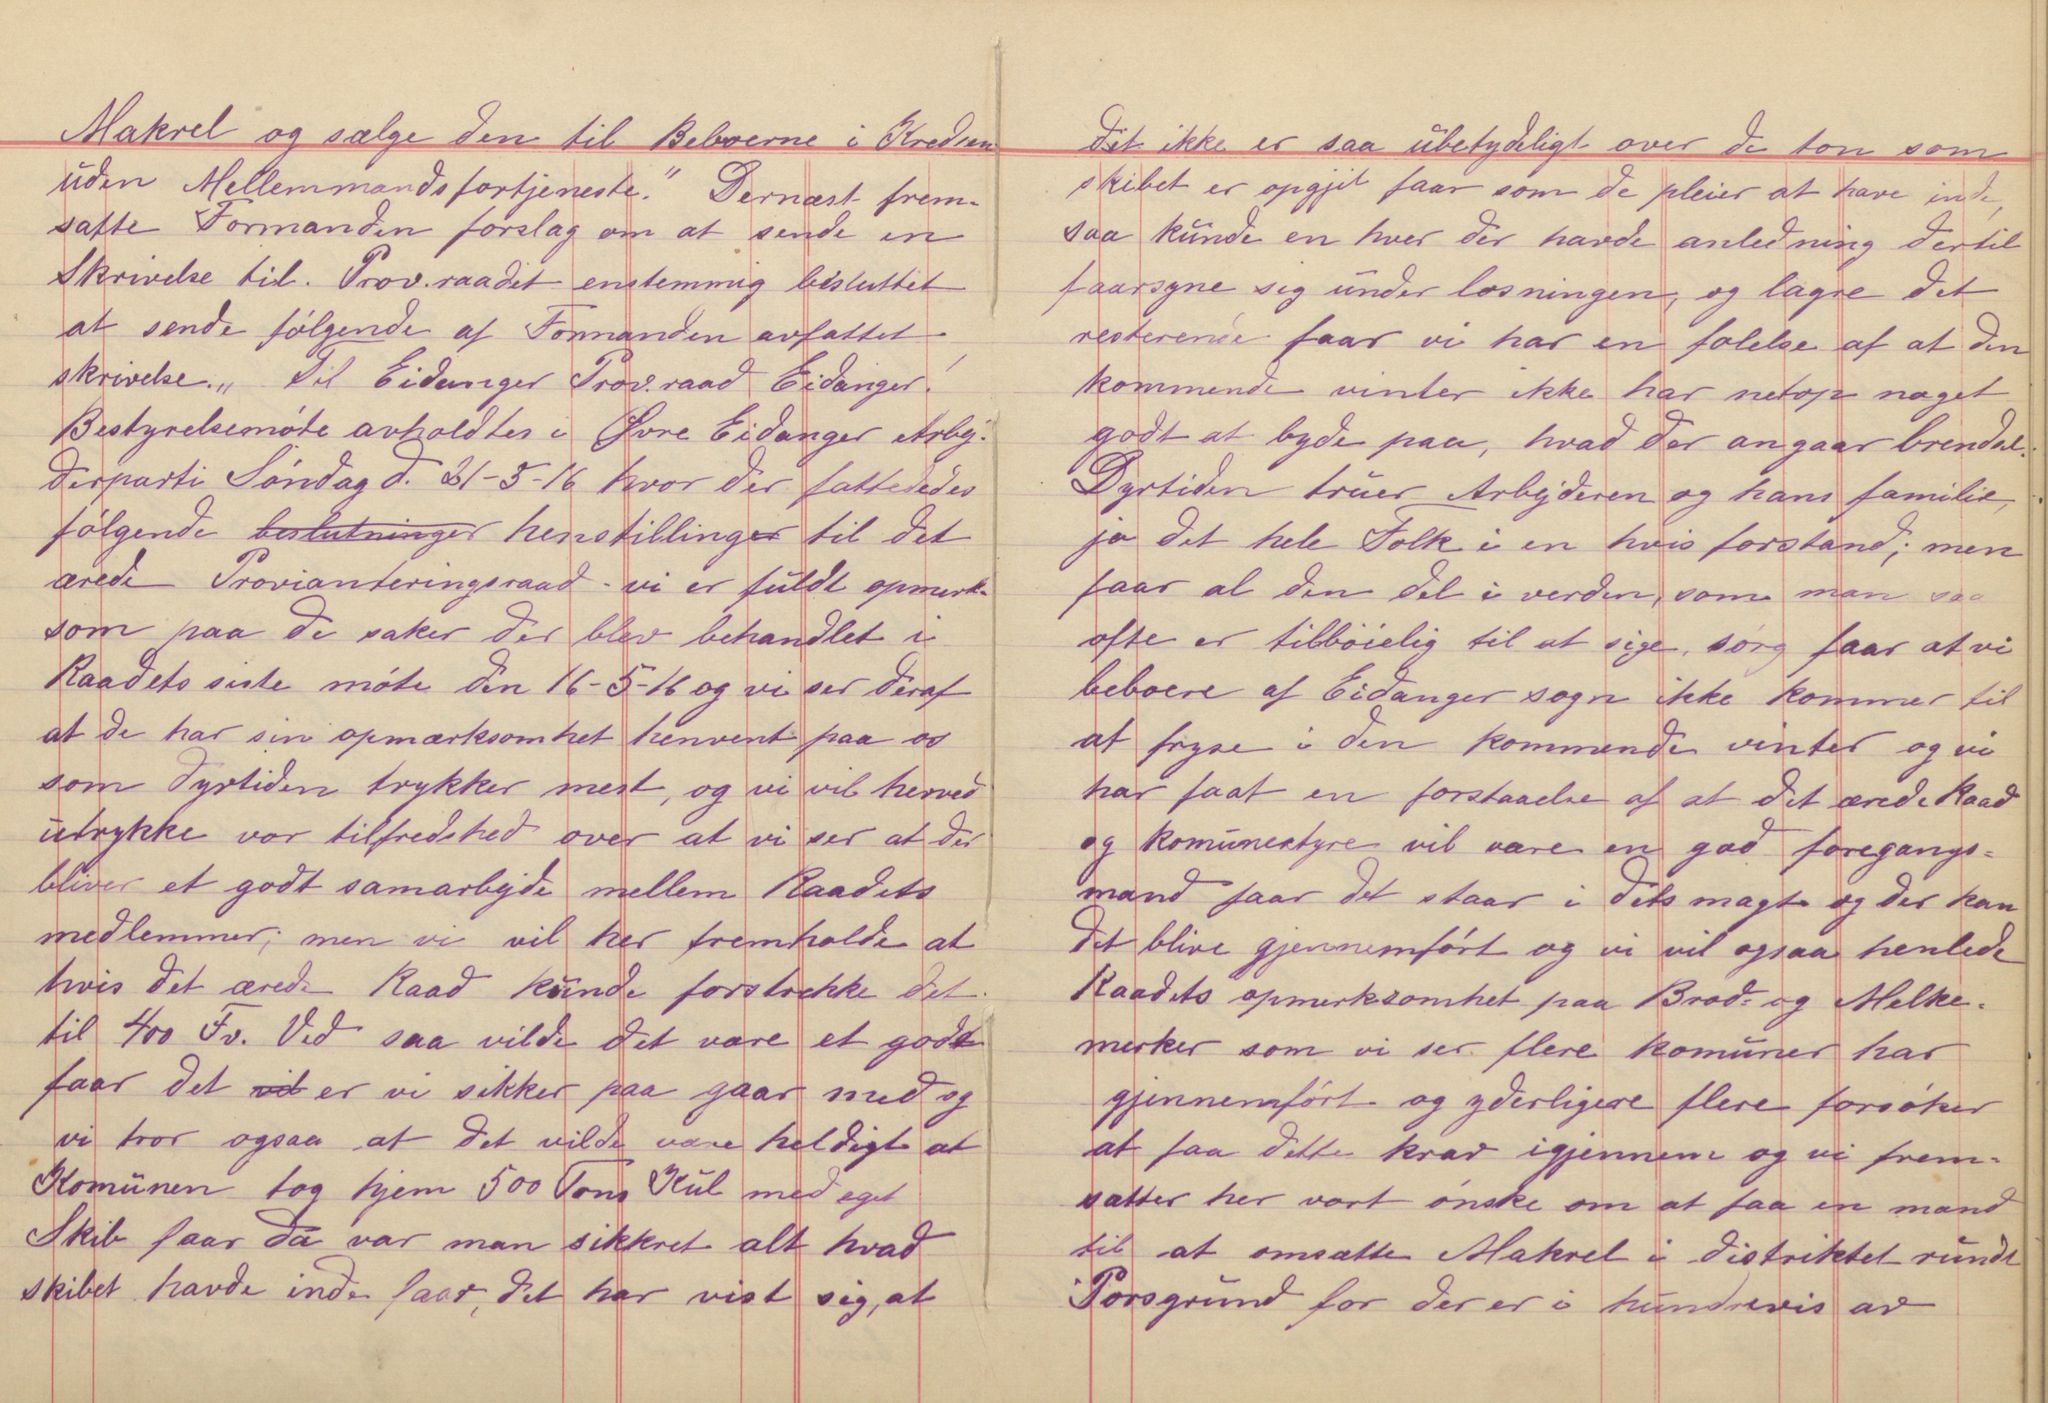 Makrel og sælge den til Beboerne i Kredsen
uden Mellemmandsfortjeneste." Dernæst frem-
satte Formanden forslag om at sende en
Skrivelse til. Prov.raadet enstemmig besluttet
at sende følgende af Formanden avfattet
skrivelse.„ Til Eidanger Prov.raad Eidanger!
Bestyrelsemöte avholdtes i Øvre Eidanger Arbej-
derparti Söndag d. 21-5-16 hvor der fattededes
fölgende beslutninger henstillinger til det
ærede Provianteringsraad - vi er fuldt opmerk-
som paa de saker der blev behandlet i
Raadets siste möte den 16-5-16 og vi ser deraf
at de har sin opmærksomhet henvent paa os
som dyrtiden trykker mest, og vi vil herved
utrykke vor tilfredshed over at vi ser at der
bliver et godt samarbejde mellem Raadets
medlemmer; men vi vil her fremholde at
hvis det ærede Raad kunde forstrekke det
til 400 Fv. Ved saa vilde det være et godt
faar det vil er vi sikker paa gaar med og
vi tror ogsaa at det vilde være heldigt at
Komunen tog hjem 500 Tons Kul med eget
Skib faar da var man sikkret alt hvad
skibet havde inde faar, det har vist sig, at
det ikke er saa ubetydeligt over de ton som
skibet er opgjit faar som de pleier at have inde,
saa kunde en hver der havde anledning dertil
faarsyne sig under losningen, og lagre det
resterende faar vi har en folelse af at den
kommende vinter ikke har netop noget
godt at byde paa, hvad der angaar brendsel.
Dyrtiden truer Arbejderen og hans familie,
ja det hele Folk i en hvis forstand; men
faar al den del i verden, som man saa
ofte er tilböielig til at sige, sörg faar at vi
beboere af Eidanger sogn ikke kommer til
at fryse i den kommende vinter og vi
har faat en forstaaelse af at det ærede Raad
og komunestyre vil være en god foregangs-
mand faar det staar i dets magt og der kan
det blive gjennemfört og vi vil ogsaa henlede
Raadets opmerksomhet paa Brød- og Melke-
merker som vi ser flere komuner har
gjennemfört og yderligere flere forsöker
at faa dette krav igjennem og vi frem-
sætter her vort önske om at faa en mand
til at omsætte Makrel i distriktet rundt
i Porsgrund for der er i hundrevis av